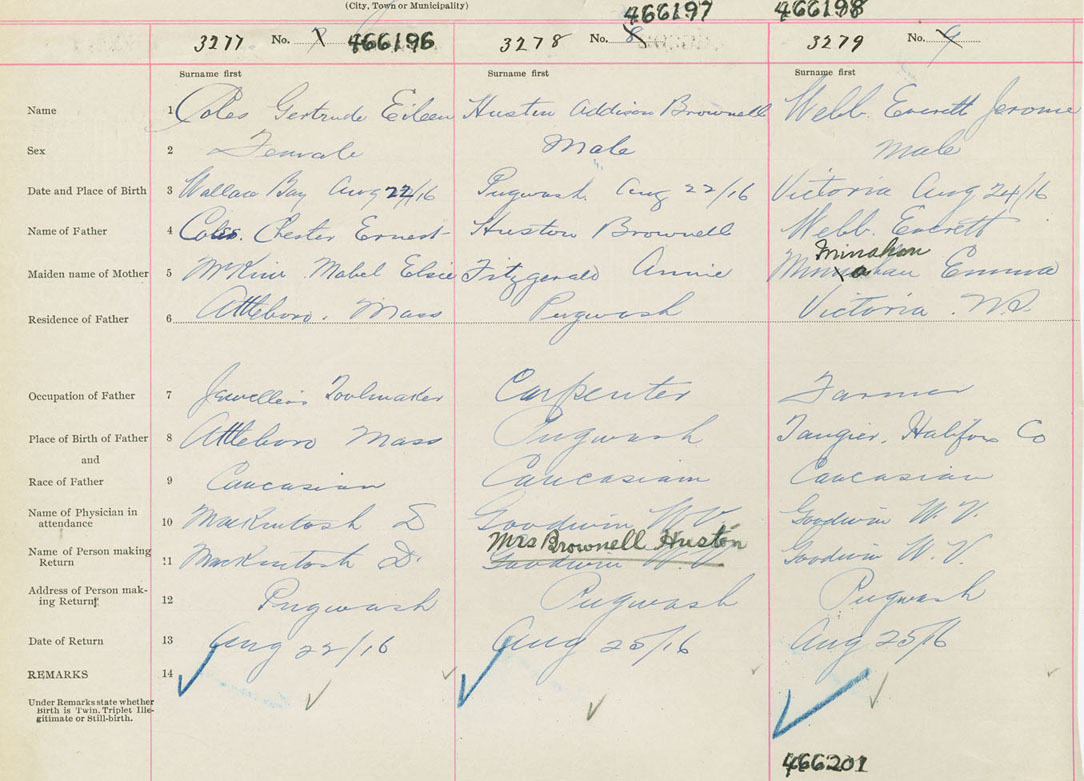 (City, Town or Municipality)
466197 466198
3277 No. 7 466196 3278 No. 8 3279 No. 9
Surname first Surname first Surname first
Name 1 Coles Gertrude Eileen Huston Addison Brownell Webb. Everett Jerome
Sex 2 Female Male Male
Date and Place of Birth 3 Wallace Bay Aug 22/16 Pugwash. Aug 22/16 Victoria Aug 24/16
Name of Father 4 Coles. Chester Ernest Huston Brownell Webb. Everett
Minahan
Maiden name of Mother 5 McKim Mabel Elsie Fitzgerald Annie Emma
Residence of Father 6 Attleboro. Mass Pugwash Victoria N.S.
Occupation of Father 7 Jewellers Toolmaker Carpenter Farmer
Place of Birth of Father 8 Attleboro Mass Pugwash Tangier, Halifax Co
and
Race of Father 9 Caucasian Caucasian Caucasian
Name of Physician in
attendance 10 MacKintosh D Goodwin W V Goodwin W. V.
Mrs Brownell Huston
Name of Person making
Return 11 MacKintosh D. Goodwin W. V Goodwin W. V.
Address of Person mak-
ing Return 12 Pugwash Pugwash Pugwash
Date of Return 13 Aug 22/16 Aug 25/16 Aug 25/16
REMARKS 14
Under Remarks state whether
Birth is Twin, Triplet Ille-
gitimate or Still-birth.
466201